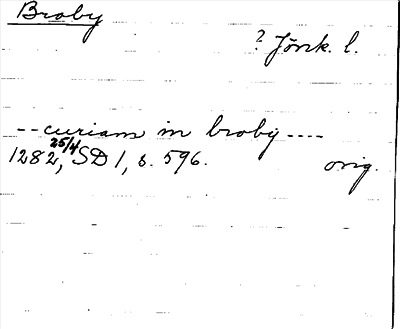 Broby
? Jönk. l.
-- curiam in broby ----
1282, 25/4 SD 1, s. 596. orig.